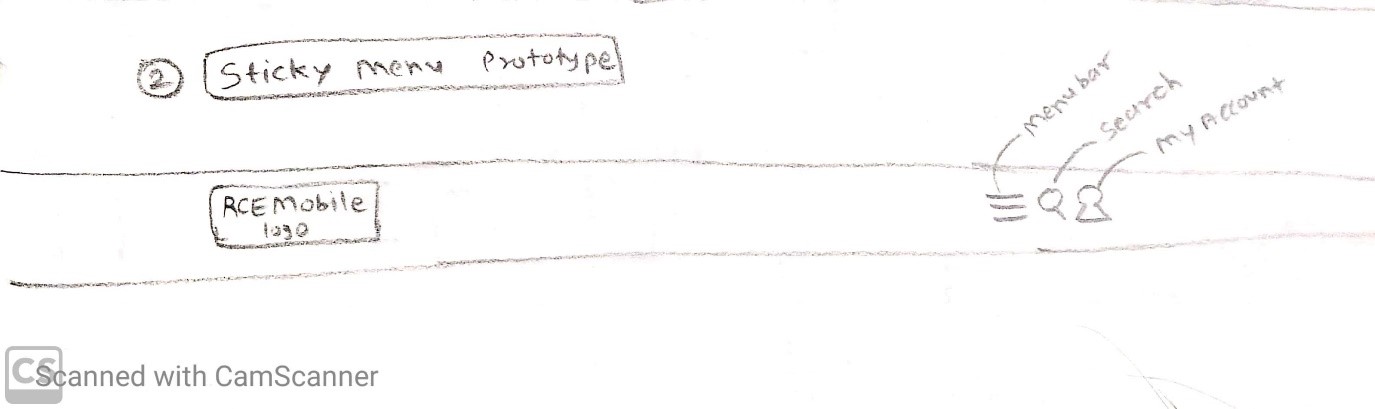 2 Sticky menu Prototype
menubar
search
my Account
RCE Mobile
logo
CS Scanned with CamScanner